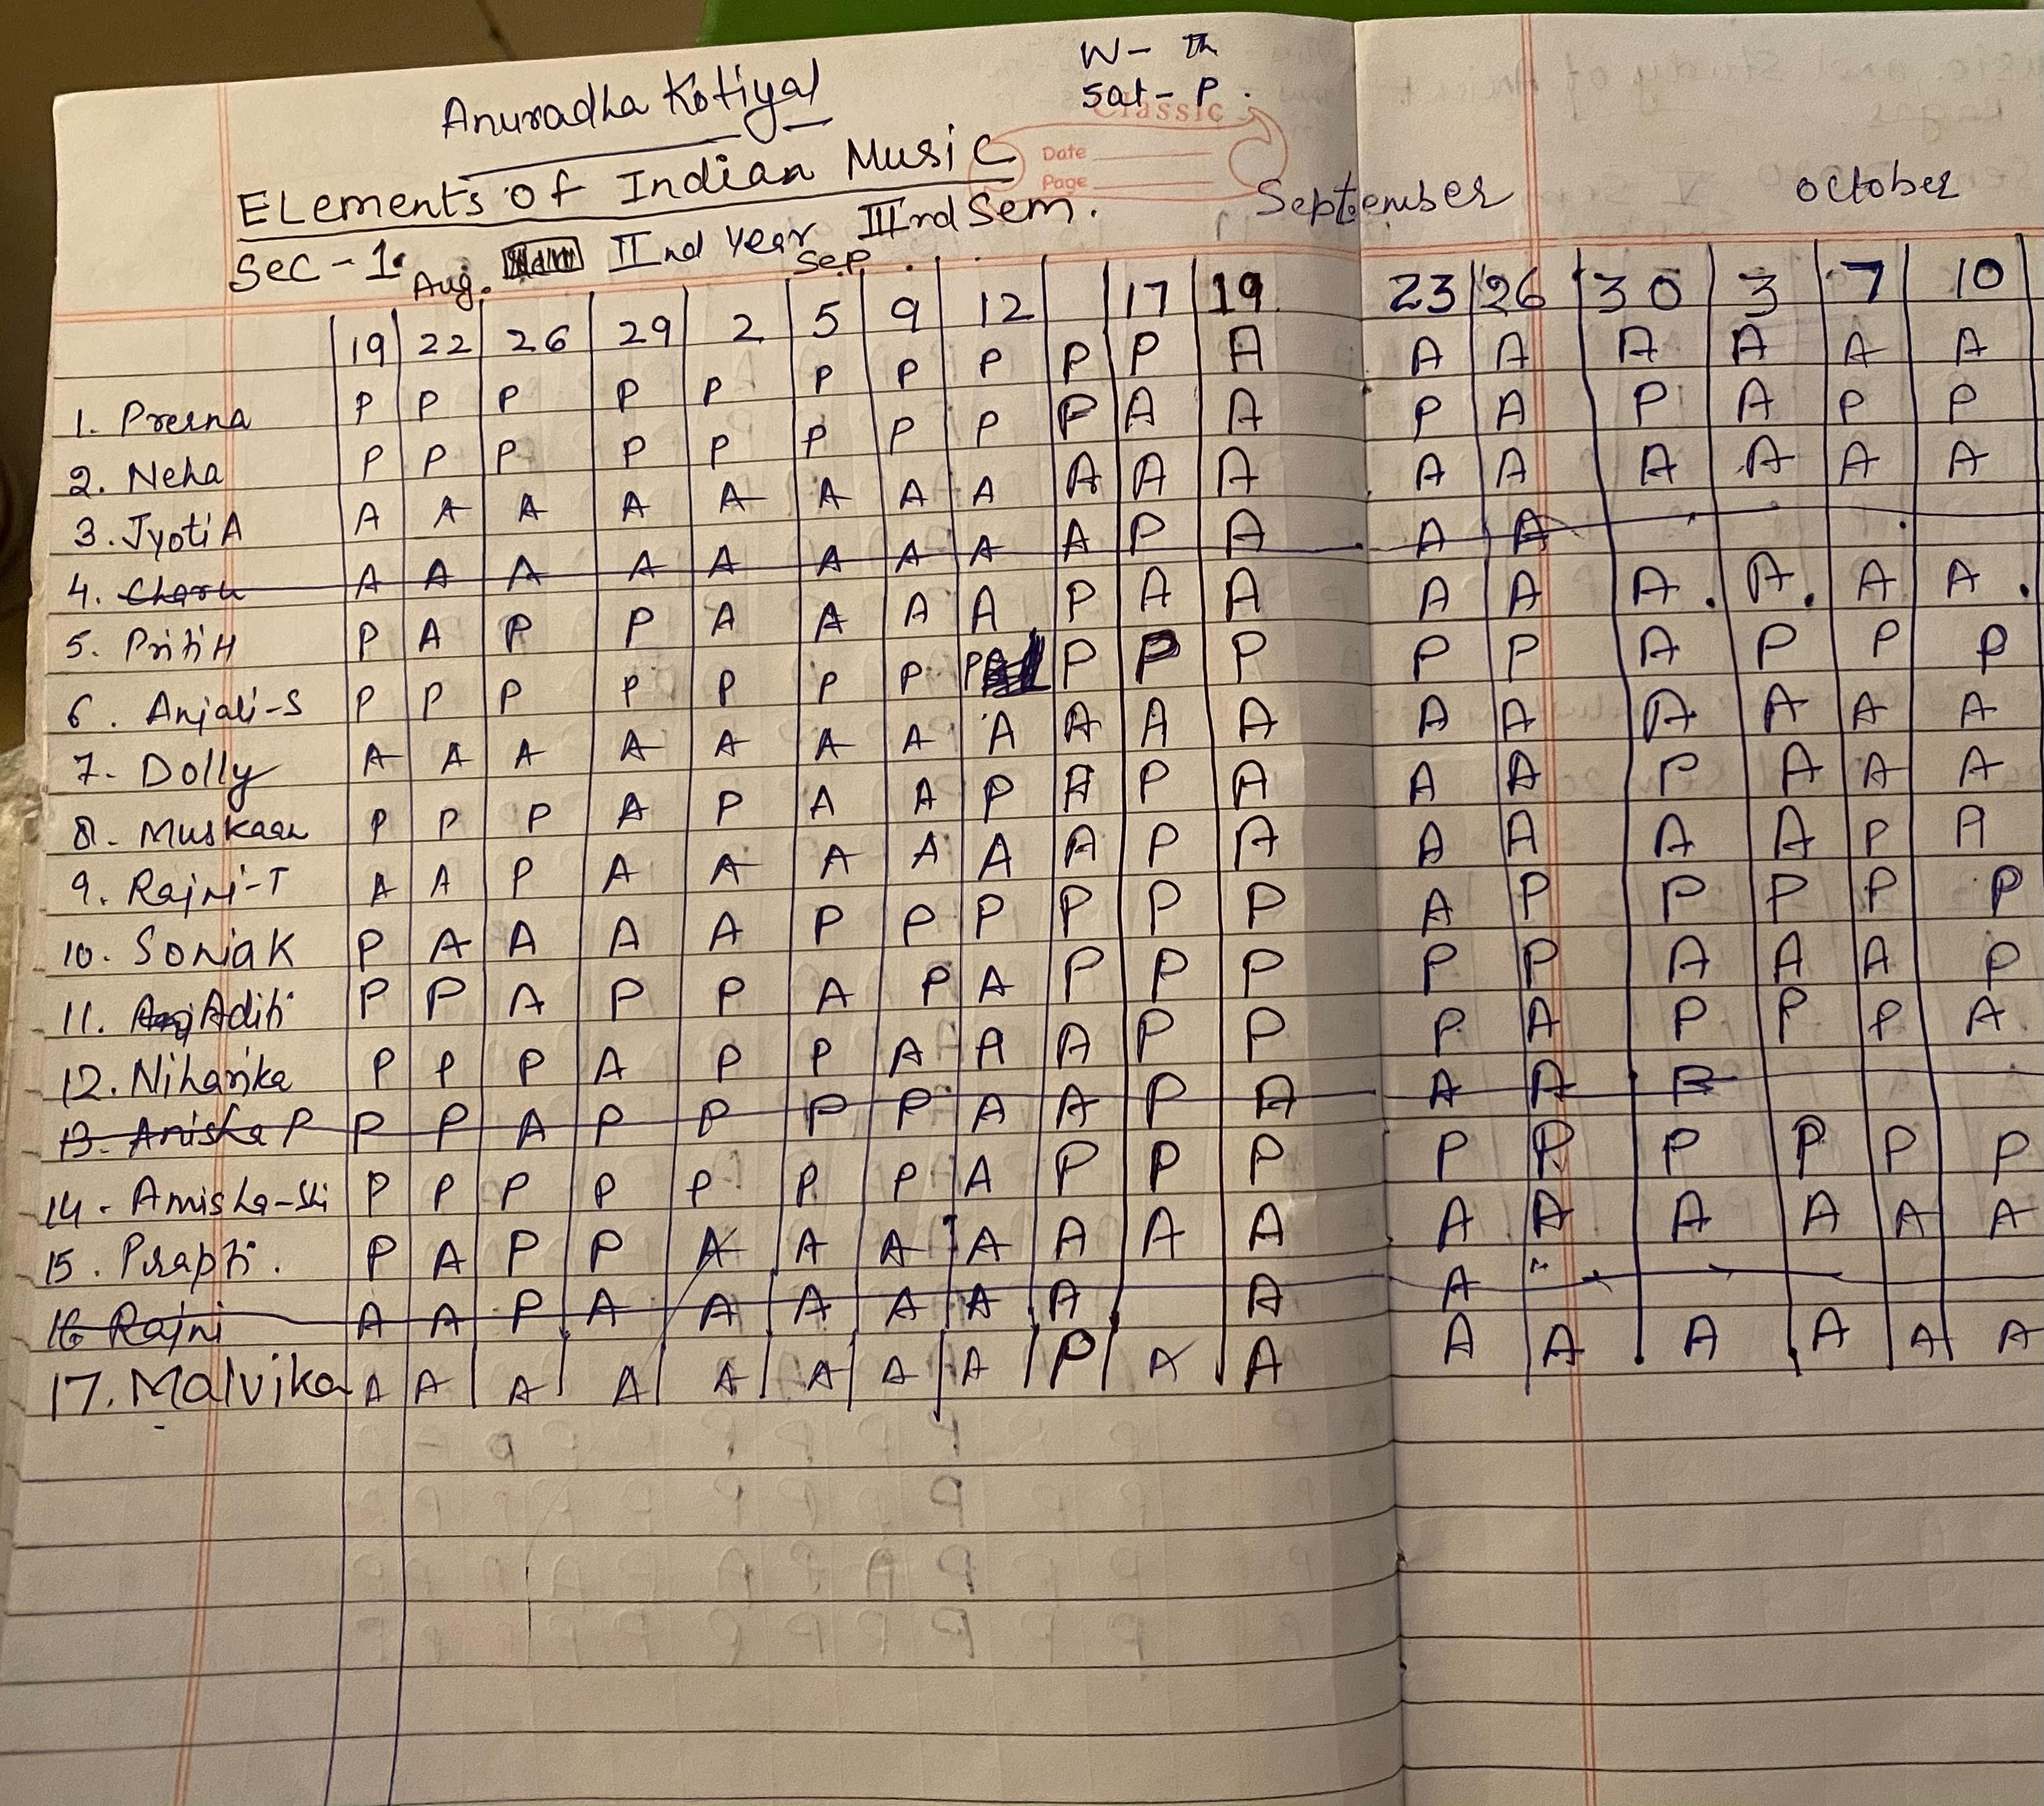 W - Th
Sat - P.
Anuradha Kotiyal
Classic
Date
Page
ELements of Indian Music
Sec - 1. IInd Year IIIrd Sem.
September october
Aug. Sep
19 22 26 29 2 5 9 12 17 19 23 26 30 3 7 10
1. Prerna P P P P P P P P P P A A A A A A A
2. Neha P P P P P P P P P A A P A P A P P
3. Jyoti A A A A A A A A A A A A A A A A A A
4. Charu A A A A A A A A A P A A A
5. Priti H P A P P A A A A P A A A A A. A. A A.
6. Anjali-S P P P P P P P P P P P P P A P P P
7. Dolly A A A A A A A A A A A A A A A A A
8. Muskaan P P P A P A A P A P A A A P A A A
9. Rajni-T A A P A A A A A A P A A A A A P A
10. Sonia K P A A A A P P P P P P A P P P P P
11. Aditi P P A P P A P A P P P P P A A A P
12. Niharika P P P A P P A A A P P P A P P P A
13. Anisha P P P A P P P P A A P A A A P
14. Amisha-Sh P P P P P P P A P P P P P P P P P
15. Prapti. P A P P A A A A A A A A A A A A A
16 Rajni A A P A A A A A A A A "
17. Malvika A A A A A A A A P A A A A A A A A